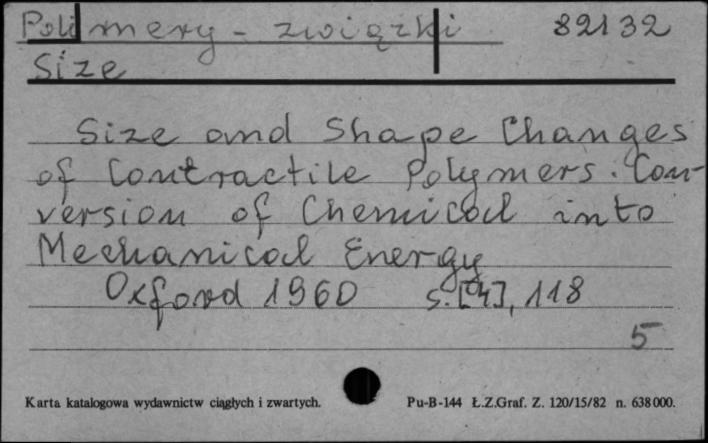 Polimery - związki 82132
Size
Size and Shape Changes
of Contractile Polymers. Con-
version of Chemical into
Mechanical Energy
Oxford 1960 s. [4], 118
5
Karta katalogowa wydawnictw ciągłych i zwartych. Pu-B-144 Ł.Z.Graf. Z. 120/15/82 n. 638000.